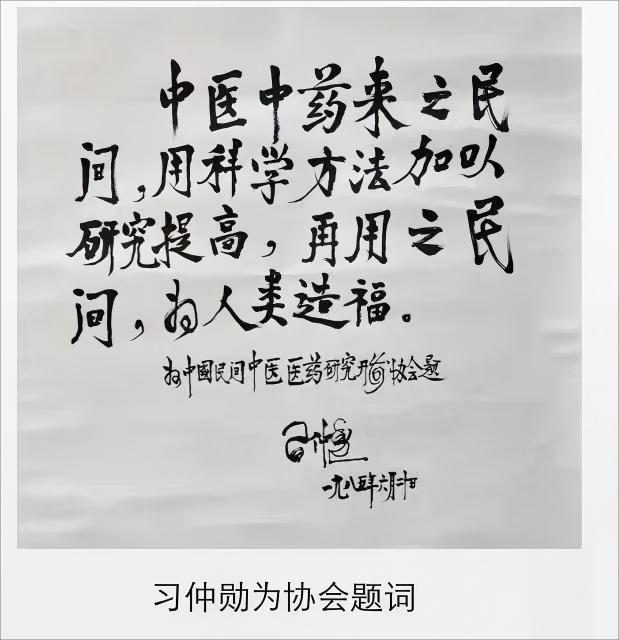 中医中药来之民
间,用科学方法加以
研究提高,再用之民
间,为人类造福。
为中國民间中医医药研究开发协会题
习仲勋
一九八五年六月二十日
习仲勋为协会题词